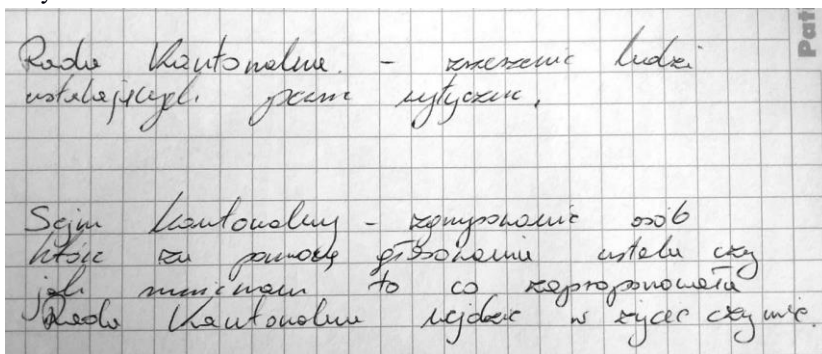 Rada Kantonalna - zrzeszenie ludzi
ustalających pewne wytyczne.
Sejm kantonalny - zgrupowanie osób
które za pomocą głosowania ustala czy
to co zaproponowała
Rada Kantonalna wejdzie w życie czy nie.
Pat